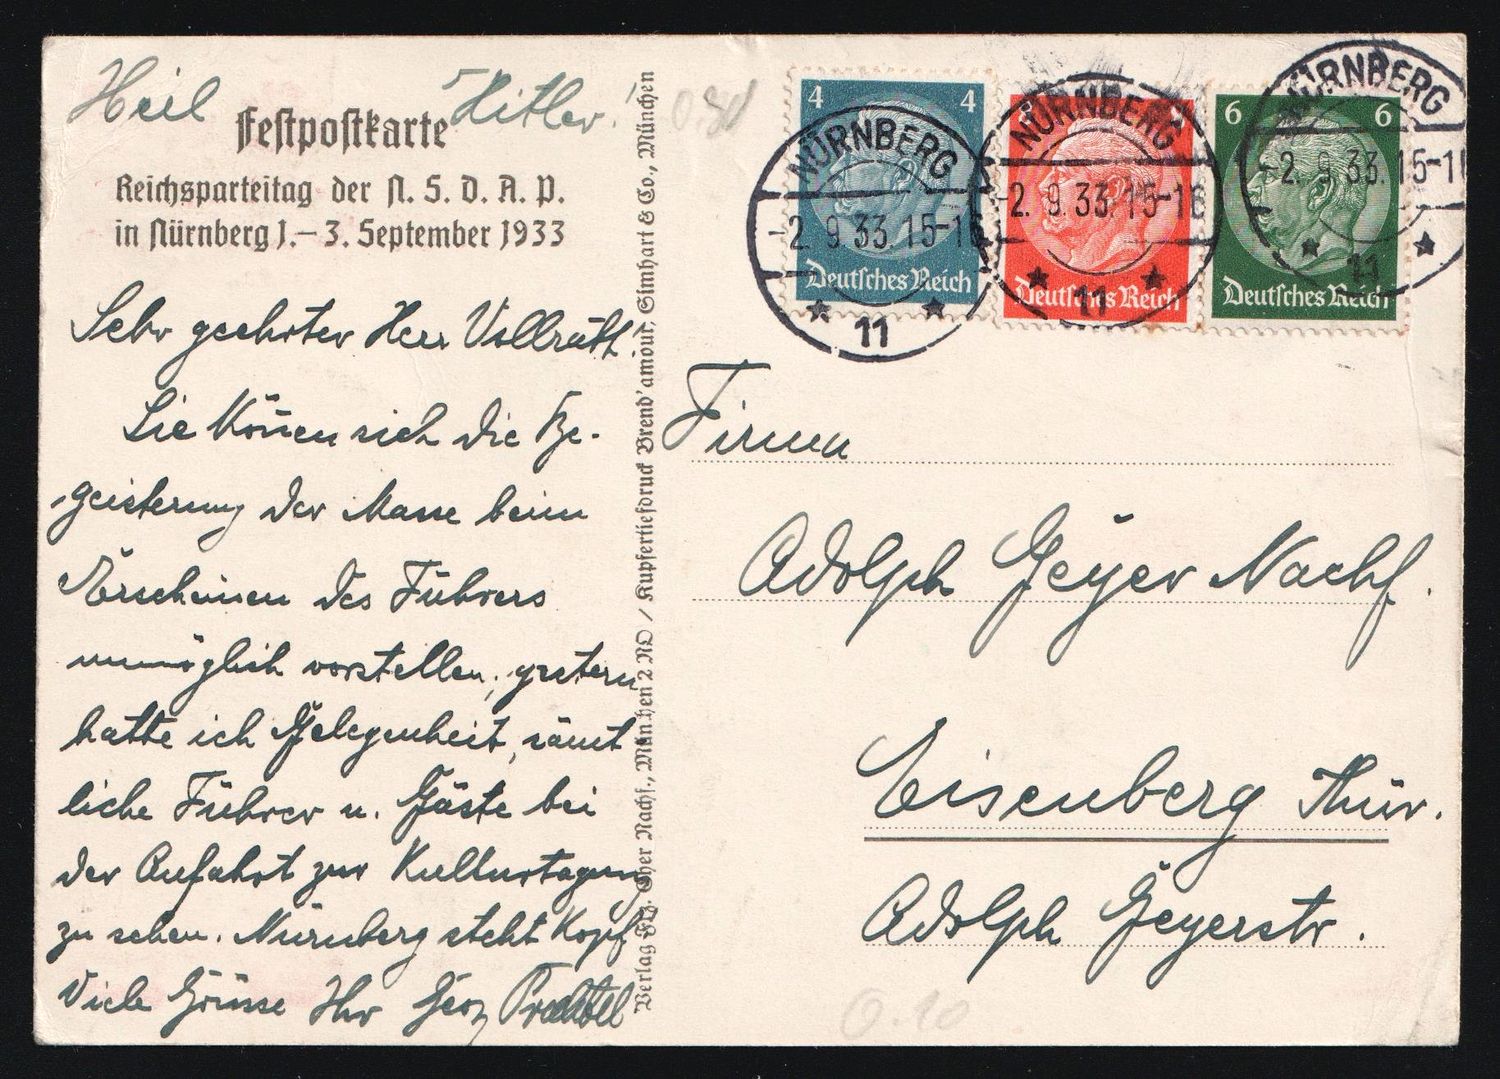 Heil Hitler!
Festpostkarte
Reichsparteitag der N. S. D. A. P.
in Nürnberg 1.–3. September 1933
Sehr geehrter Herr Vollrath.
Sie können sich die Be-
geisterung der Masse beim
Erscheinen des Führers
unmöglich vorstellen, gestern
hatte ich Gelegenheit, sämt
liche Führer u. Gäste bei
der Anfahrt zur Kulturtagung
zu sehen. Nürnberg steht Kopf
Viele Grüsse Ihr Georg
Verlag Frz. Eher Nachf., München 2 NO / Kupfertiefdruck Brend'amour, Simhart & Co., München
4 4
Deutsches Reich
Deutsches Reich
6 6
Deutsches Reich
NÜRNBERG
2.9.33.15-16
11
NÜRNBERG
2.9.33.15-16
11
NÜRNBERG
2.9.33.15-1
11
Firma
Adolph Geyer Nachf.
Eisenberg Thür.
Adolph Geyerstr.
0.10